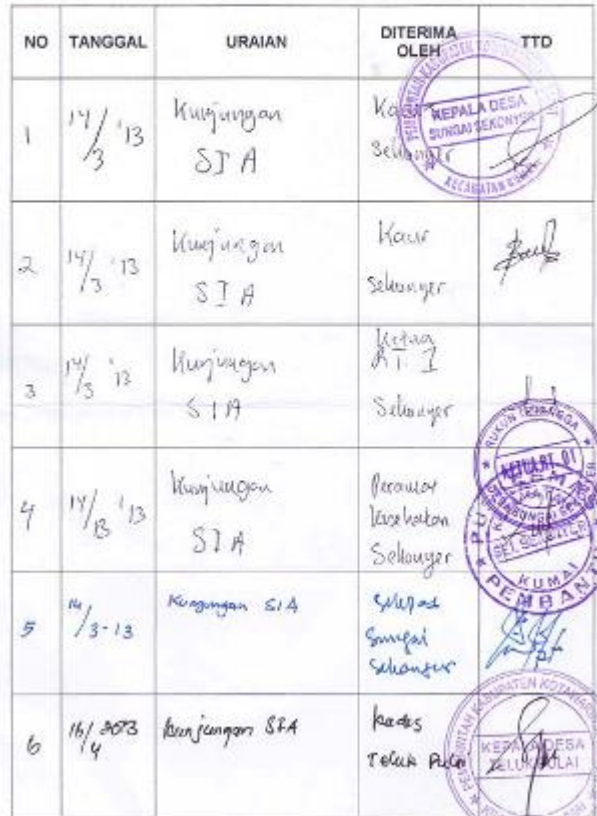 NO TANGGAL URAIAN DITERIMA OLEH TTD
1 14/3 '13 Kunjungan SIA Sekonyer
KEPALA DESA
SUNGAI SEKONYER
KECAMATAN
2 14/3 '13 Kunjungan SIA Kaur Sekonyer
3 14/3 '13 Kunjungan SIA Ketua RT. I Sekonyer
RUKUN TETANGGA
KETUA RT. 01
4 14/13 '13 Kunjungan SIA Perawat Kesehatan Sekonyer
KUMAI
PEMBANTU
5 14/3-13 Kunjungan SIA Sungai Sekonyer
6 16/4 2013 Kunjungan SIA kades Teluk Pulai
KEPALA DESA
TELUK PULAI